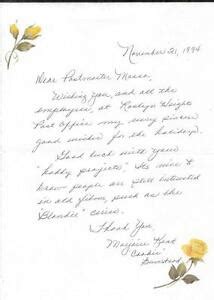 November 21, 1994
Dear Postmaster
Wishing you, and all the
employees, at Roslyn Heights
Post Office my very sincere
good wishes for the holidays.
Good luck with your
"hobby projects." Its nice to
know people are still interested
in old films, such as the
"Blondie" series.
Thank You
Marjorie Kent
"Cookie"
Bumstead